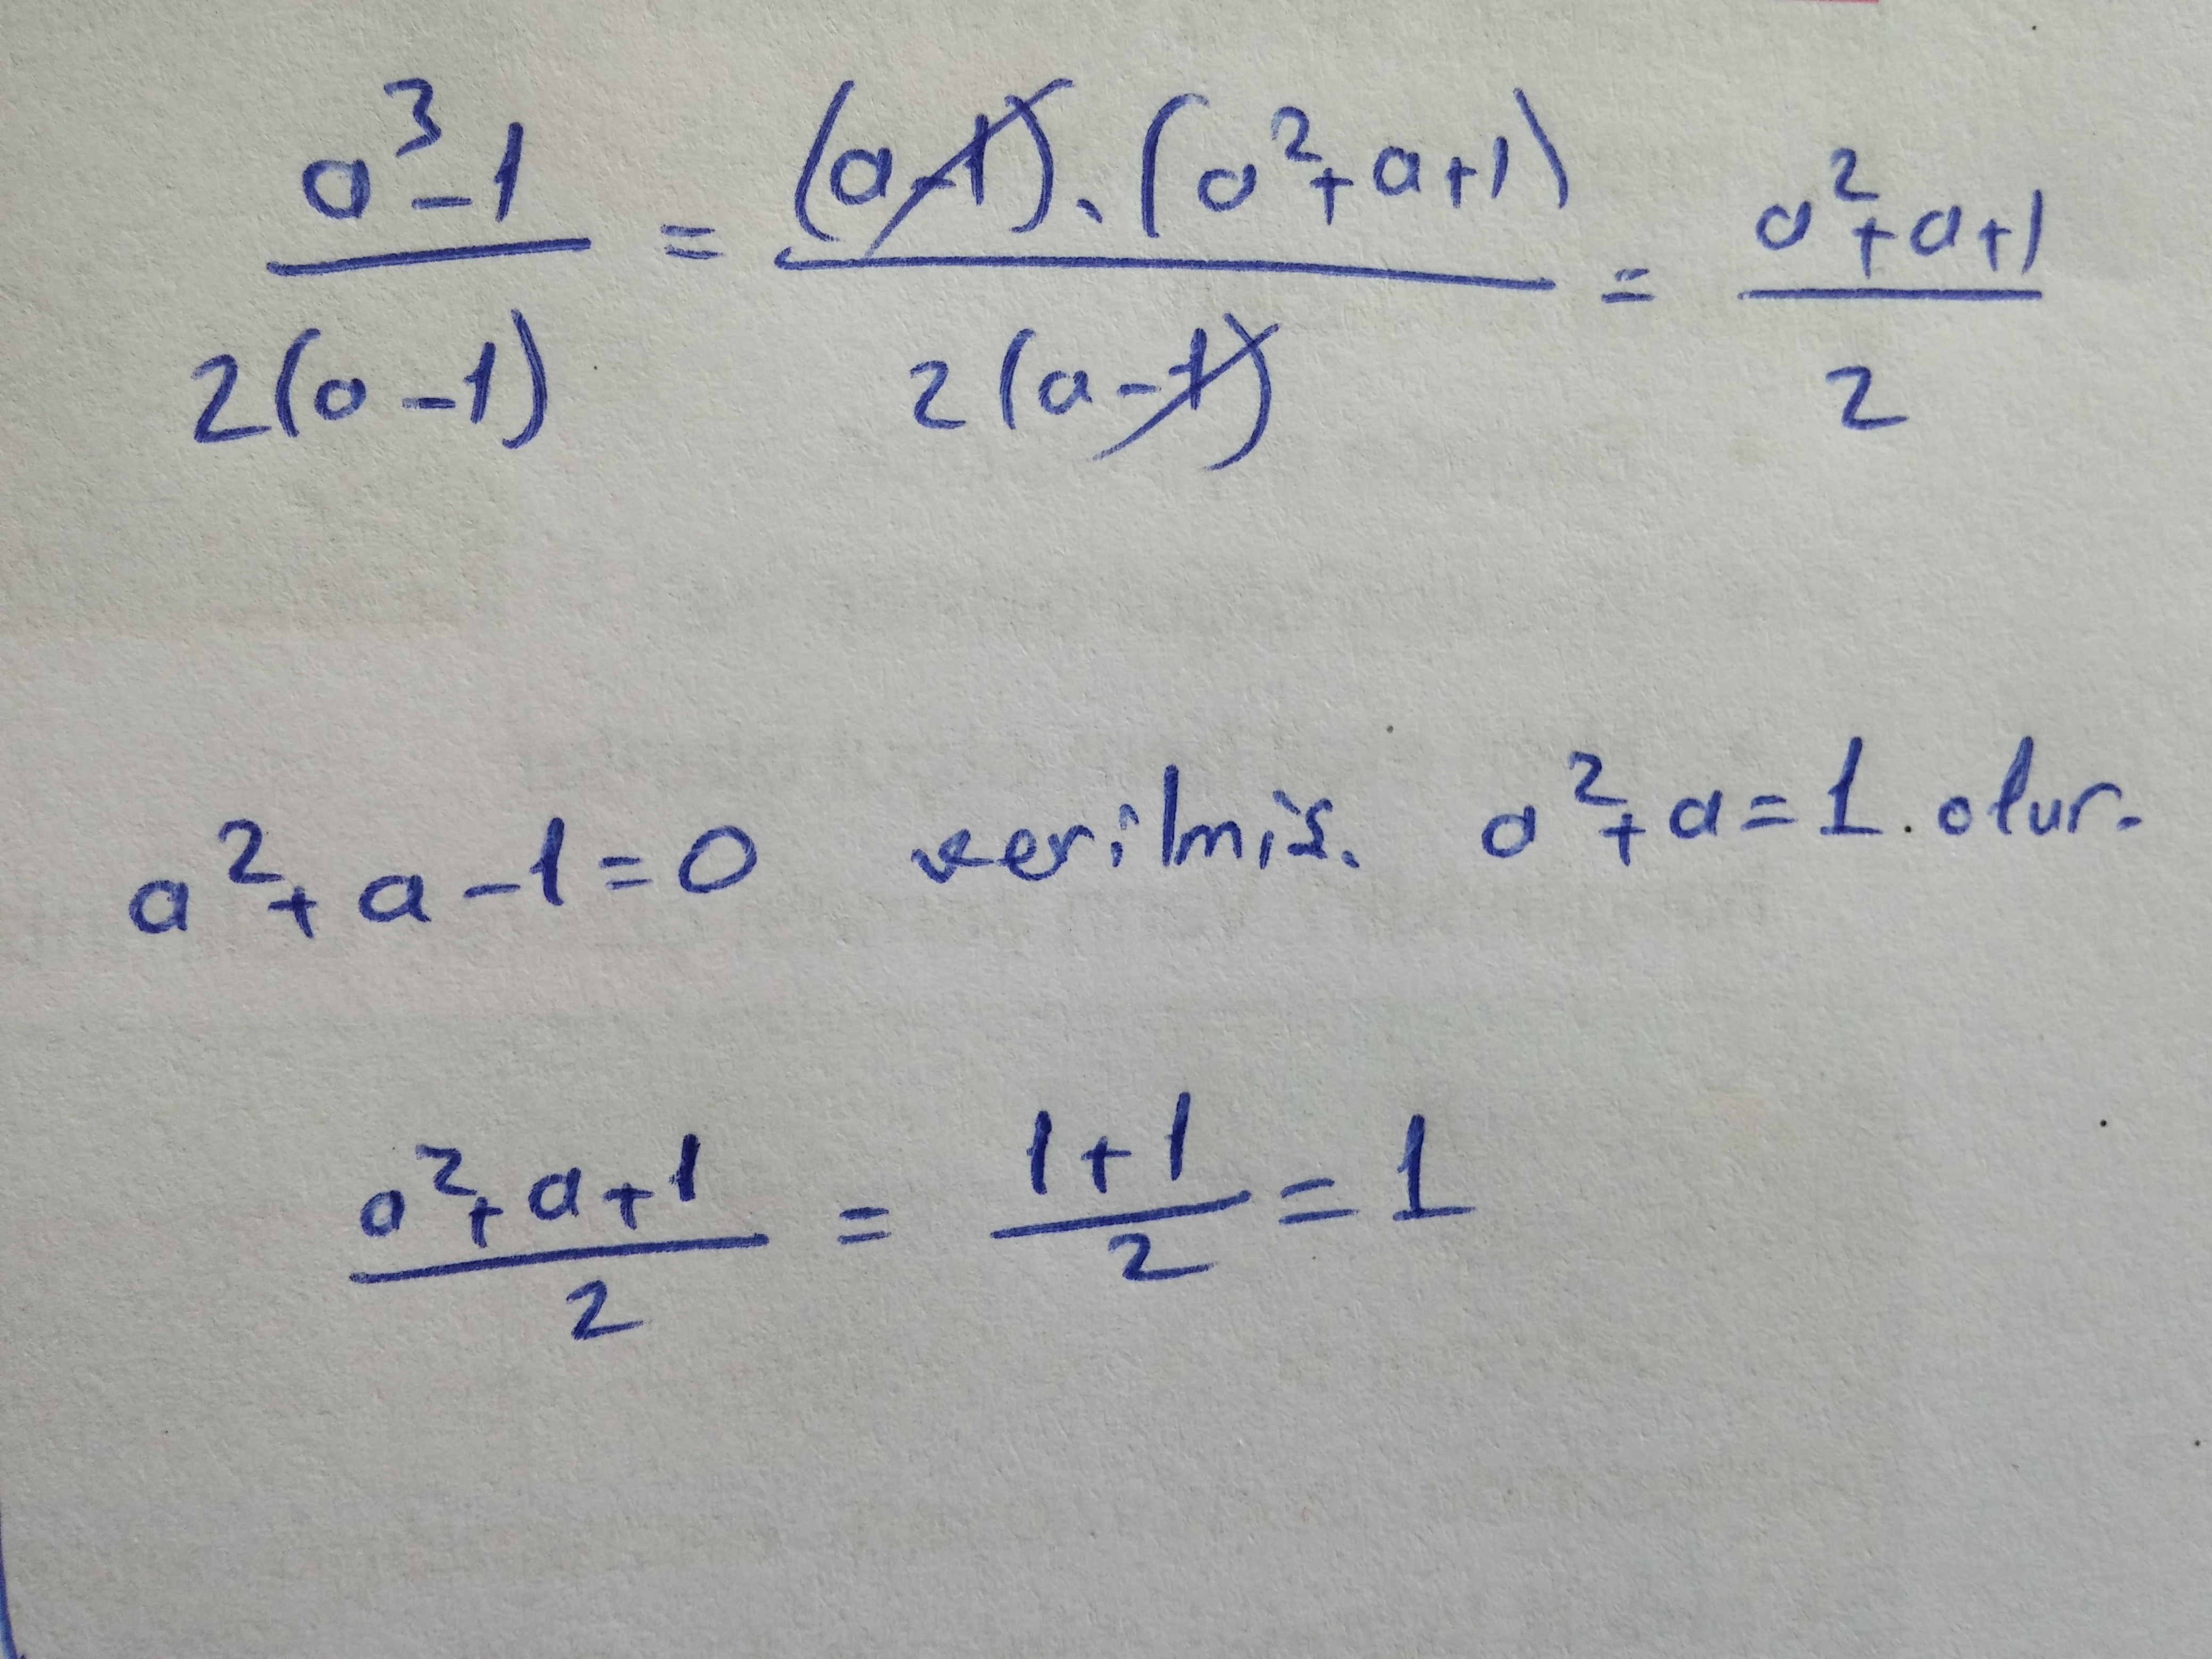 a³-1 / 2(a-1) = (a-1).(a²+a+1) / 2(a-1) = a²+a+1 / 2
a²+a-1=0 verilmiş. a²+a=1. olur.
a²+a+1 / 2 = 1+1 / 2 = 1